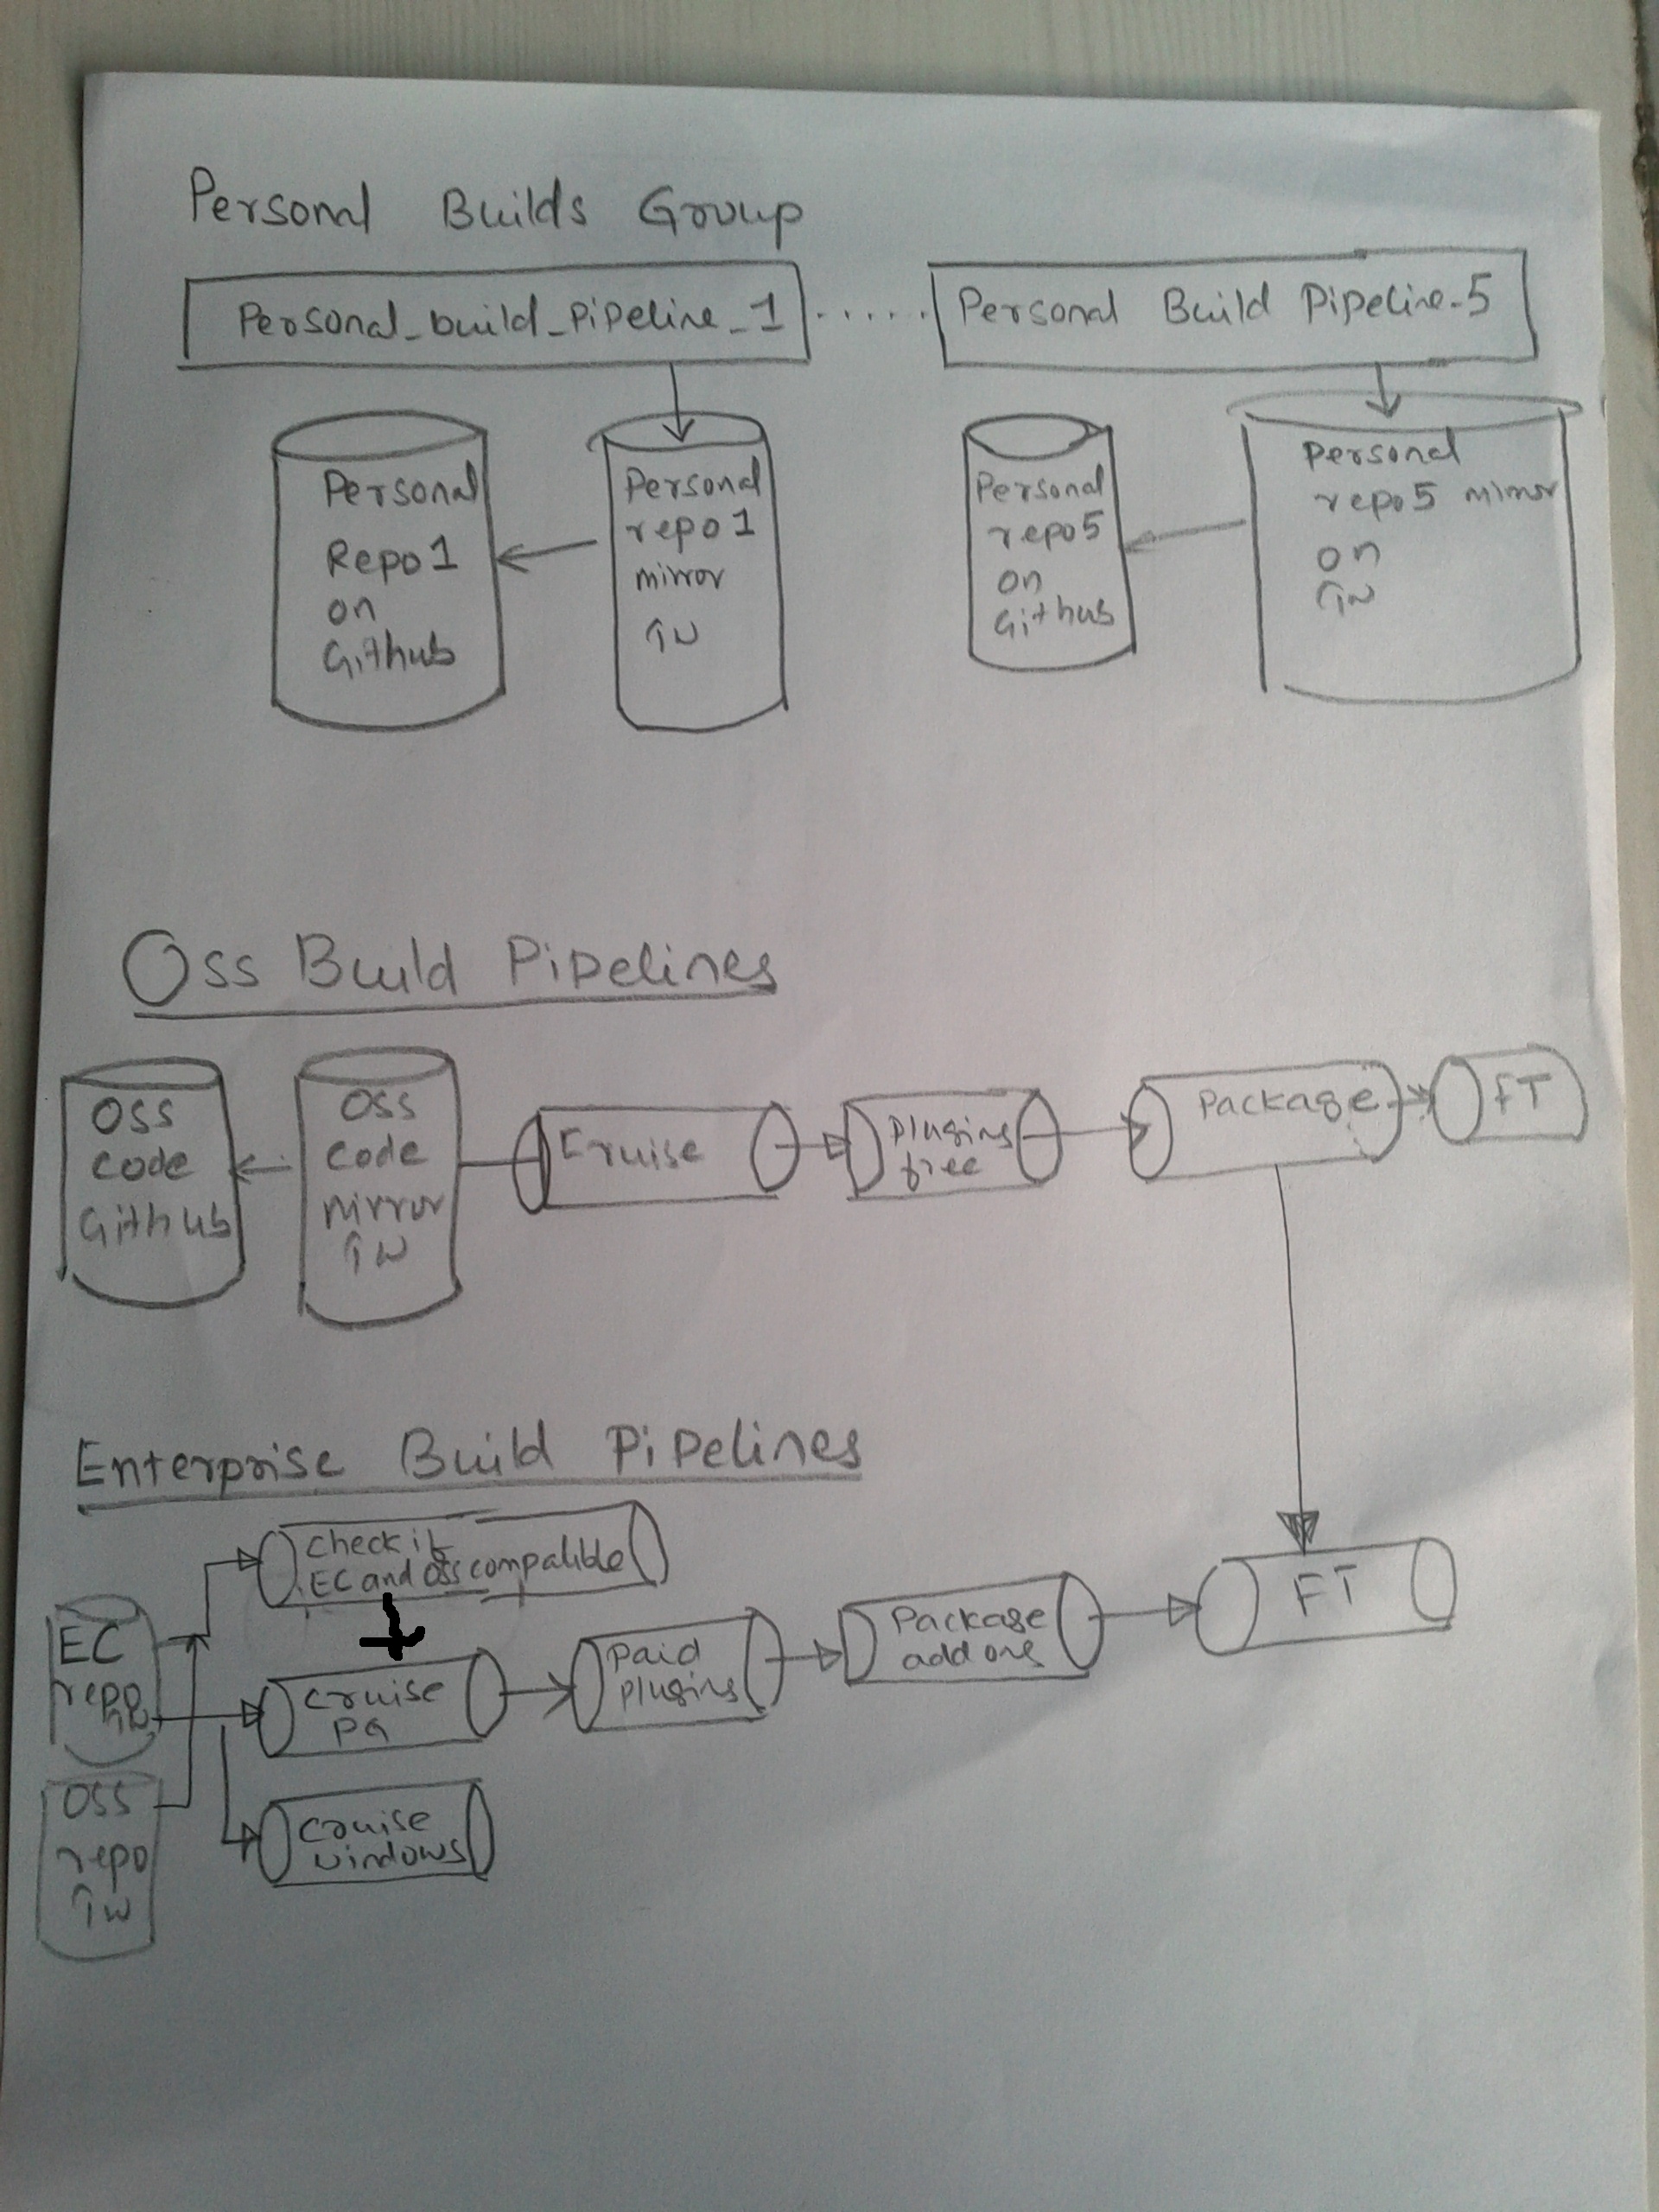 Personal Builds Group
Personal_build_Pipeline_1 ..... Personal Build Pipeline-5
Personal
Repo1
on
Github
Personal
repo1
mirror
TW
Personal
repo5
on
Github
Personal
repo5 mirror
on
TW
Oss Build Pipelines
OSS
Code
Github
OSS
Code
mirror
TW
Cruise
Plugins
free
Package
FT
Enterprise Build Pipelines
Check if
EC and OSS compatible
EC
repo
TW
Cruise
PG
Paid
plugins
Package
add ons
FT
OSS
repo
TW
Cruise
windows